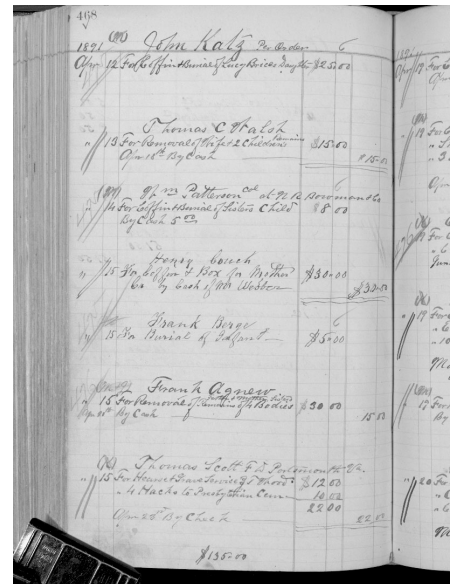 468
1891 John Katz Per Order 6
Apr 12 For Coffin & Burial of Lucy Brices Daughter $25.00
Thomas C Walsh
" 13 For Removal of Wife & 2 Children Remains $15.00
Apr 16th By Cash $15.00
Wm Patterson Col at W R Bowman & Co 6
" 14 For Coffin & Burial of Sisters Child $8.00
By Cash 5 00
Henry Couch
" 15 For Coffin & Box for Mother $30.00
by Cash of Mr Webber $30.00
Frank Berge 6
" 15 For Burial of Infant $5.00
Frank Agnew
" 15 For Removal of Remains of 4 Bodies $30 00
By Cash 15 00
Thomas Scott F D Portsmouth Va
" 15 For Hearse & Grave Service $12.00
" 4 Hacks to Presbyterian Cem 10.00
22.00
Apr 28th By Check 22.00
$135.00